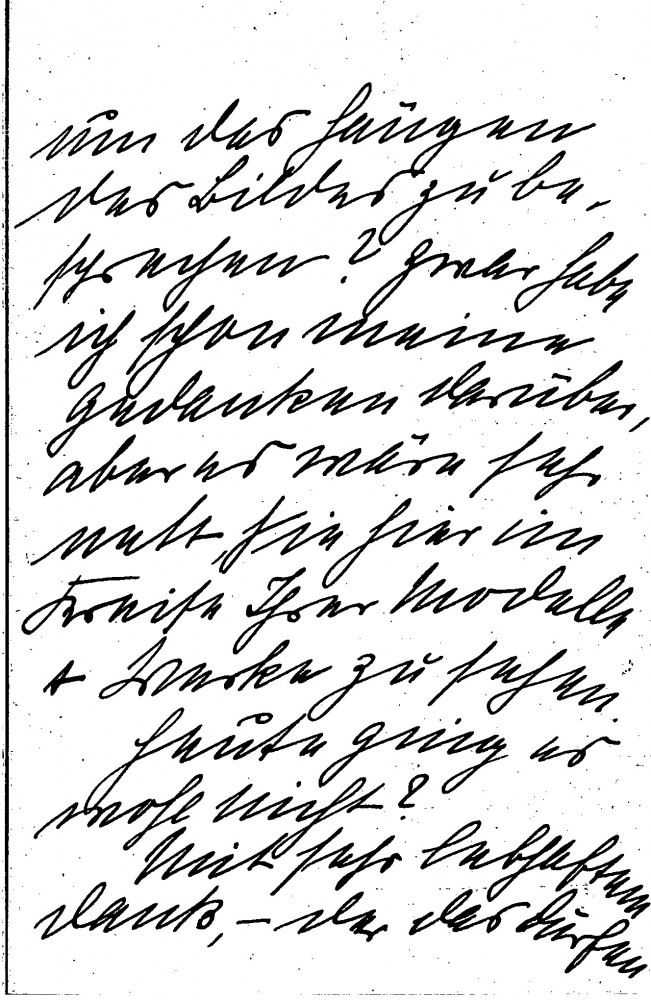 um das Hängen
des Bildes zu be-
sprechen? Zwar habe
ich schon meine
Gedanken darüber,
aber es wäre sehr
nett, Sie hier im
Kreise Ihrer Modelle
+ Werke zu sehen.
Heute ging es
wohl nicht?
Mit sehr lebhaftem
Dank, – der des dürfen